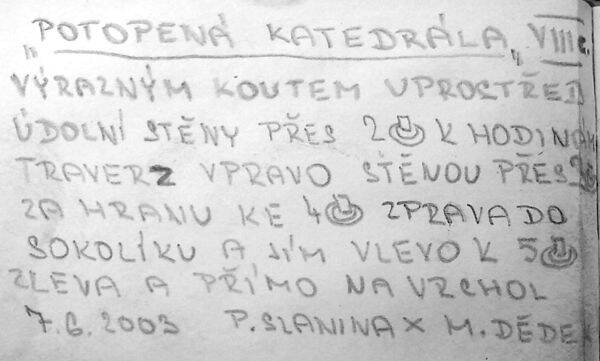 „POTOPENÁ KATEDRÁLA„ VIII c.
VÝRAZNÝM KOUTEM UPROSTŘED
ÚDOLNÍ STĚNY PŘES 2 K HODINÁM
TRAVERZ VPRAVO STĚNOU PŘES
ZA HRANU KE 4 ZPRAVA DO
SOKOLÍKU A JÍM VLEVO K 5
ZLEVA A PŘÍMO NA VRCHOL
7.6.2003 P. SLANINA X M. DĚDEK